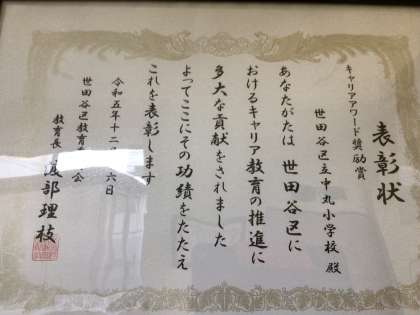 表彰状
キャリアアワード奨励賞
世田谷区立中丸小学校 殿
あなたがたは 世田谷区に
おけるキャリア教育の推進に
多大な貢献をされました
よってここにその功績をたたえ
これを表彰します
令和五年十二 六日
世田谷区教育 会
教育長 渡部理枝